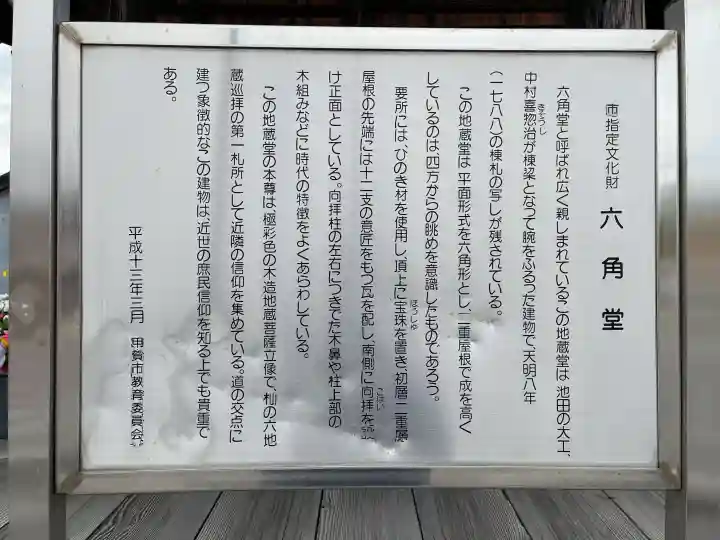 市指定文化財 六角堂
六角堂と呼ばれ広く親しまれているこの地蔵堂は、池田の大工、
中村喜惣治が棟梁となって腕をふるった建物で、天明八年
きそうじ
(一七八八)の棟札の写しが残されている。
この地蔵堂は、平面形式を六角形とし、二重屋根で成を高く
しているのは四方からの眺めを意識したものであろう。
要所には、ひのき材を使用し、頂上に宝珠を置き、初層、二重層
ほうしゅ
屋根の先端には十二支の意匠をもつ瓦を配し、南側に向拝を設
こはい
け正面としている。向拝柱の左右につきでた木鼻や柱上部の
木組みなどに時代の特徴をよくあらわしている。
この地蔵堂の本尊は、極彩色の木造地蔵菩薩立像で、杣の六地
蔵巡拝の第一札所として近隣の信仰を集めている。道の交点に
建つ象徴的なこの建物は、近世の庶民信仰を知る上でも貴重で
ある。
平成十三年三月 甲賀市教育委員会